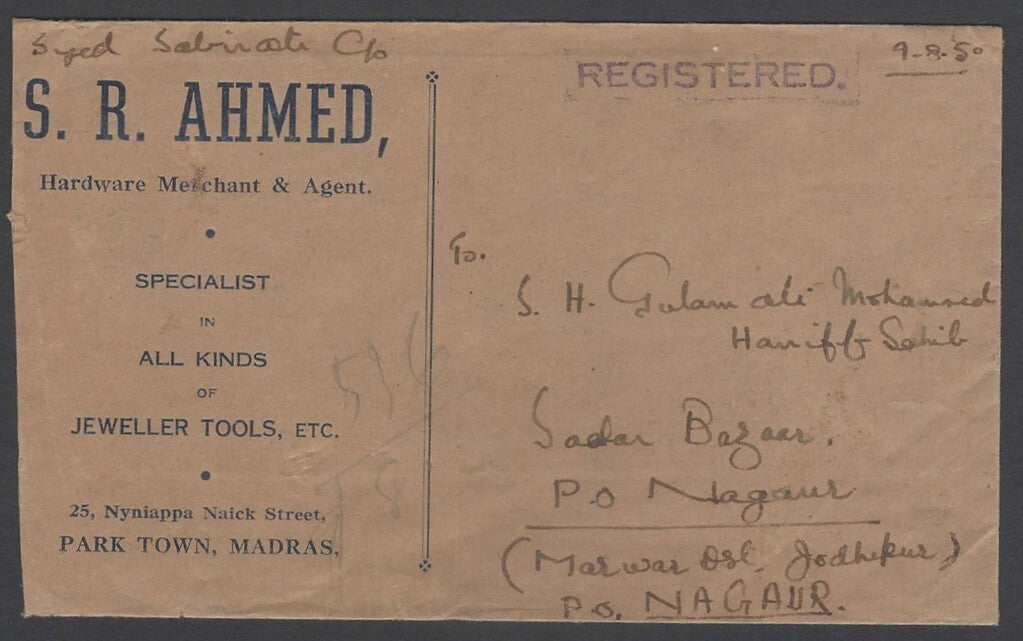 Syed Sabirali C/o
S. R. AHMED,
Hardware Merchant & Agent.
SPECIALIST
IN
ALL KINDS
OF
JEWELLER TOOLS, ETC.
25, Nyniappa Naick Street,
PARK TOWN, MADRAS.
REGISTERED.
9-8-50
To.
S. H. Gulam ali Mohammed
Haniff Sahib
Sadar Bazaar.
P.O Nagaur
(Marwar Dst. Jodhpur)
P.O. NAGAUR.